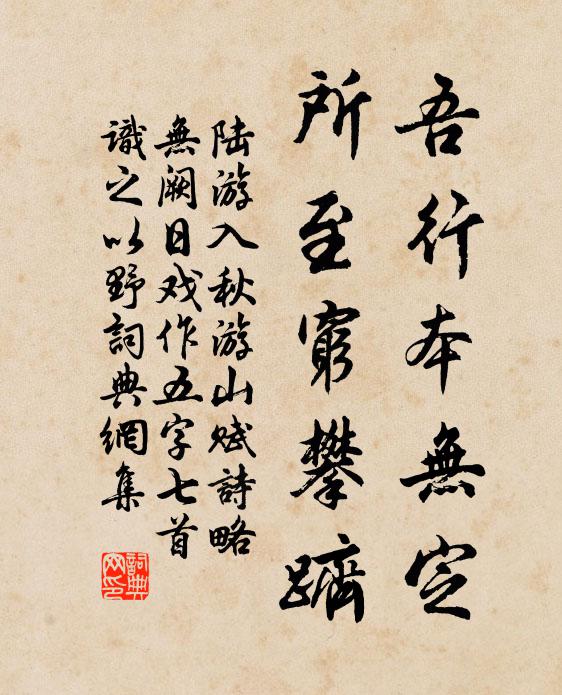 吾行本無定
所至窮攀躋
陆游入秋游山赋詩略
無阙日戏作五字七首
識之以野詞典網集
詞典网印